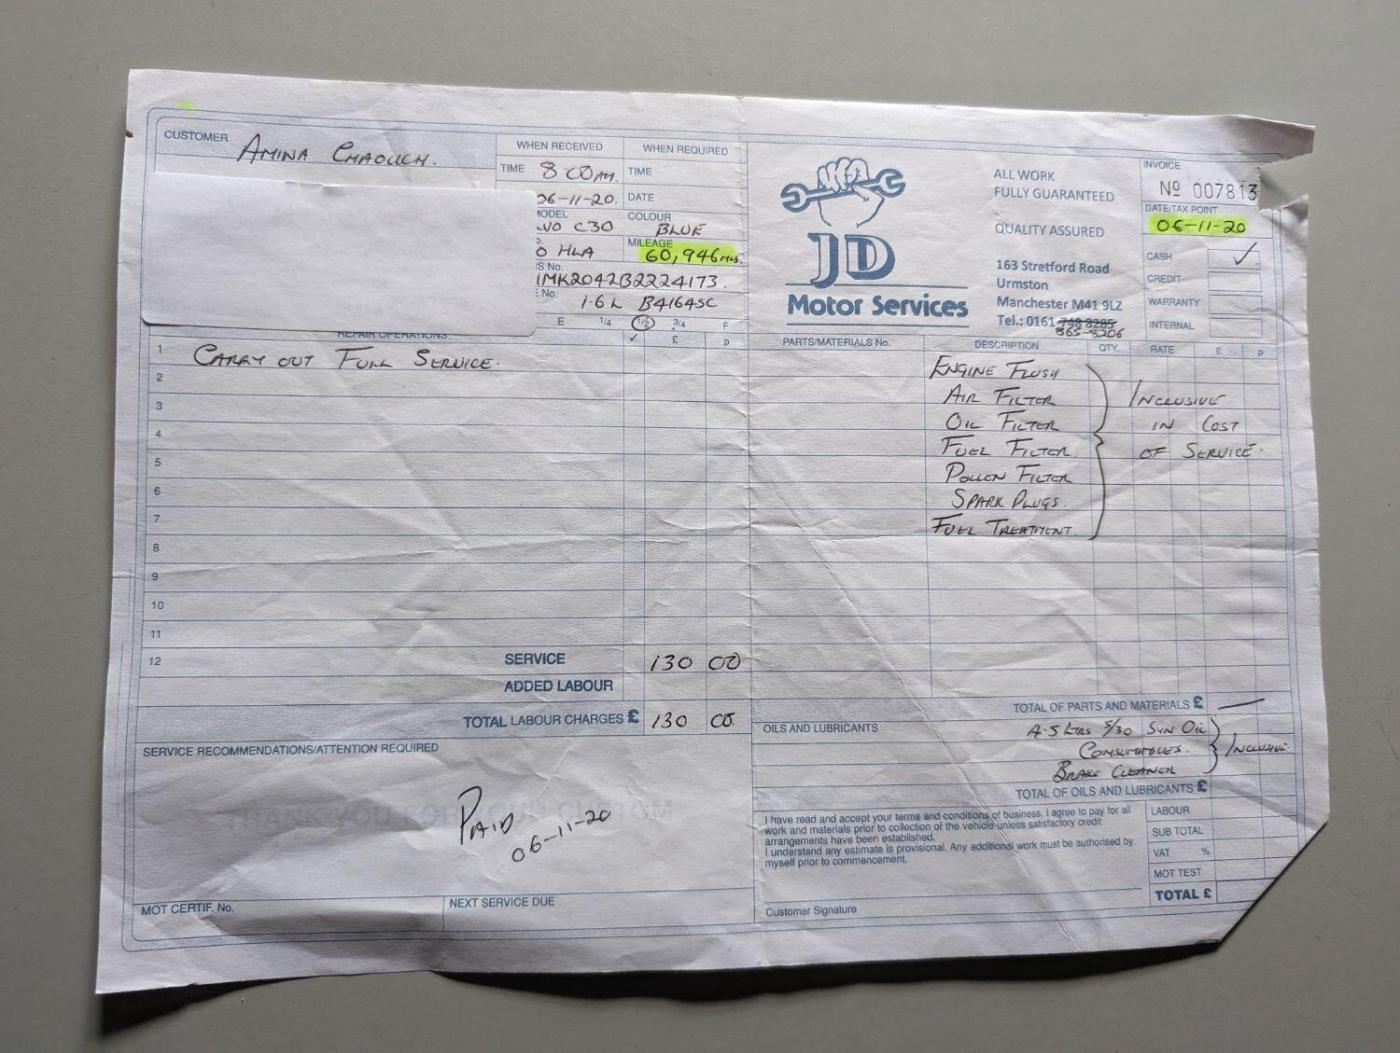 CUSTOMER AMINA CHAOUCH.
WHEN RECEIVED WHEN REQUIRED
TIME 8 00 AM. TIME
06-11-20. DATE
MODEL COLOUR
VO C30 BLUE
MILEAGE
O HLA 60,946 MLS.
S No.
1MK2042B2224173.
No.
1.6L B4164SC
E 1/4 1/2 3/4 F
REPAIR OPERATIONS ✓ £ p
1 CARRY OUT FULL SERVICE.
2
3
4
5
6
7
8
9
10
11
12
SERVICE 130 00
ADDED LABOUR
TOTAL LABOUR CHARGES £ 130 00
SERVICE RECOMMENDATIONS/ATTENTION REQUIRED
PAID
06-11-20
MOT CERTIF. No. NEXT SERVICE DUE
JD
Motor Services
ALL WORK
FULLY GUARANTEED
QUALITY ASSURED
163 Stretford Road
Urmston
Manchester M41 9LZ
Tel.: 0161 748 8285
865-8206
INVOICE
Nº 007813
DATE/TAX POINT
06-11-20
CASH ✓
CREDIT
WARRANTY
INTERNAL
PARTS/MATERIALS No. DESCRIPTION QTY. RATE £ p
ENGINE FLUSH
AIR FILTER INCLUSIVE
OIL FILTER IN COST
FUEL FILTER OF SERVICE.
POLLEN FILTER
SPARK PLUGS.
FUEL TREATMENT.
TOTAL OF PARTS AND MATERIALS £ —
OILS AND LUBRICANTS 4.5 LTRS 5/30 SYN OIL
CONSUMABLES. INCLUSIVE.
BRAKE CLEANER
TOTAL OF OILS AND LUBRICANTS £
I have read and accept your terms and conditions of business. I agree to pay for all
work and materials prior to collection of the vehicle unless satisfactory credit
arrangements have been established.
I understand any estimate is provisional. Any additional work must be authorised by
myself prior to commencement.
Customer Signature
LABOUR
SUB TOTAL
VAT %
MOT TEST
TOTAL £